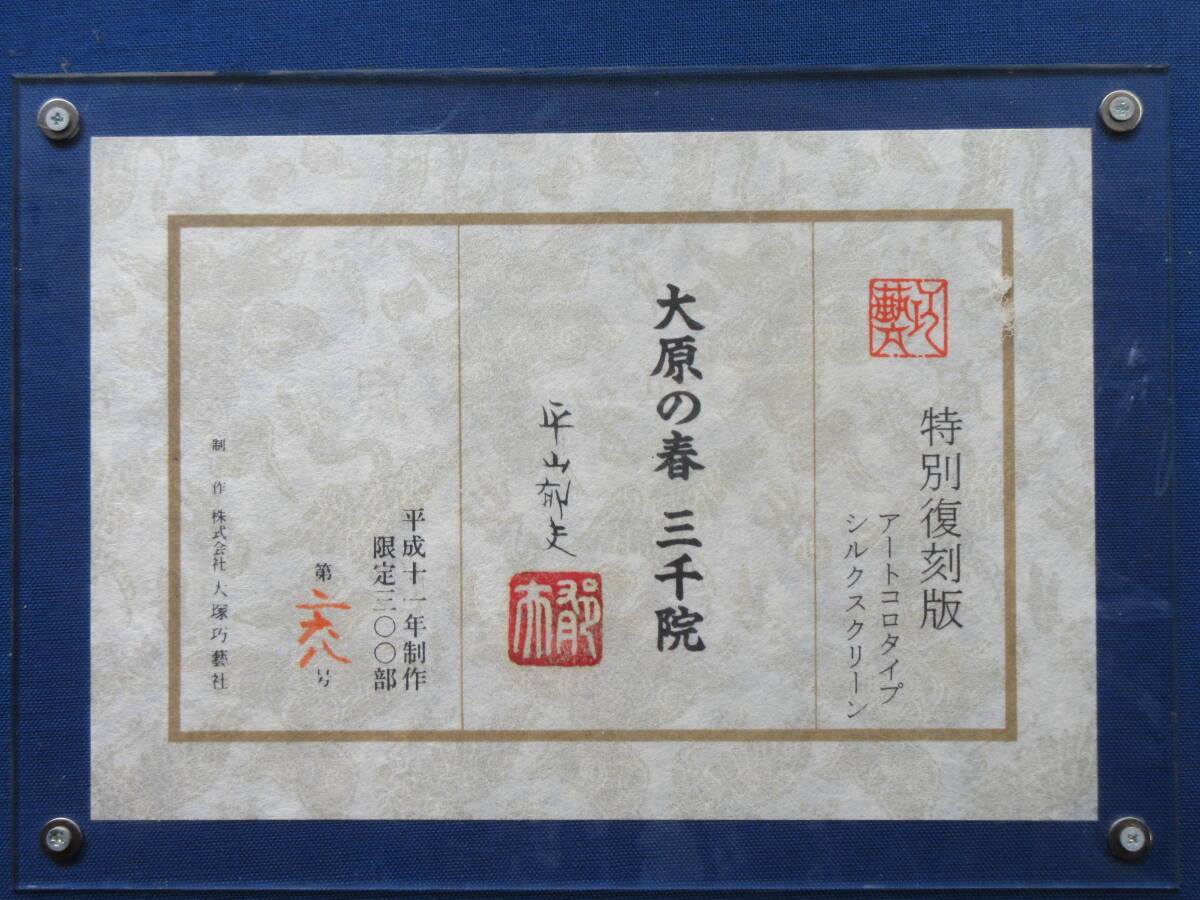 巧藝
特別復刻版
アートコロタイプ
シルクスクリーン
大原の春 三千院
平山郁夫
郁夫
平成十一年制作
限定三〇〇部
第二六八号
制作 株式会社 大塚巧藝社